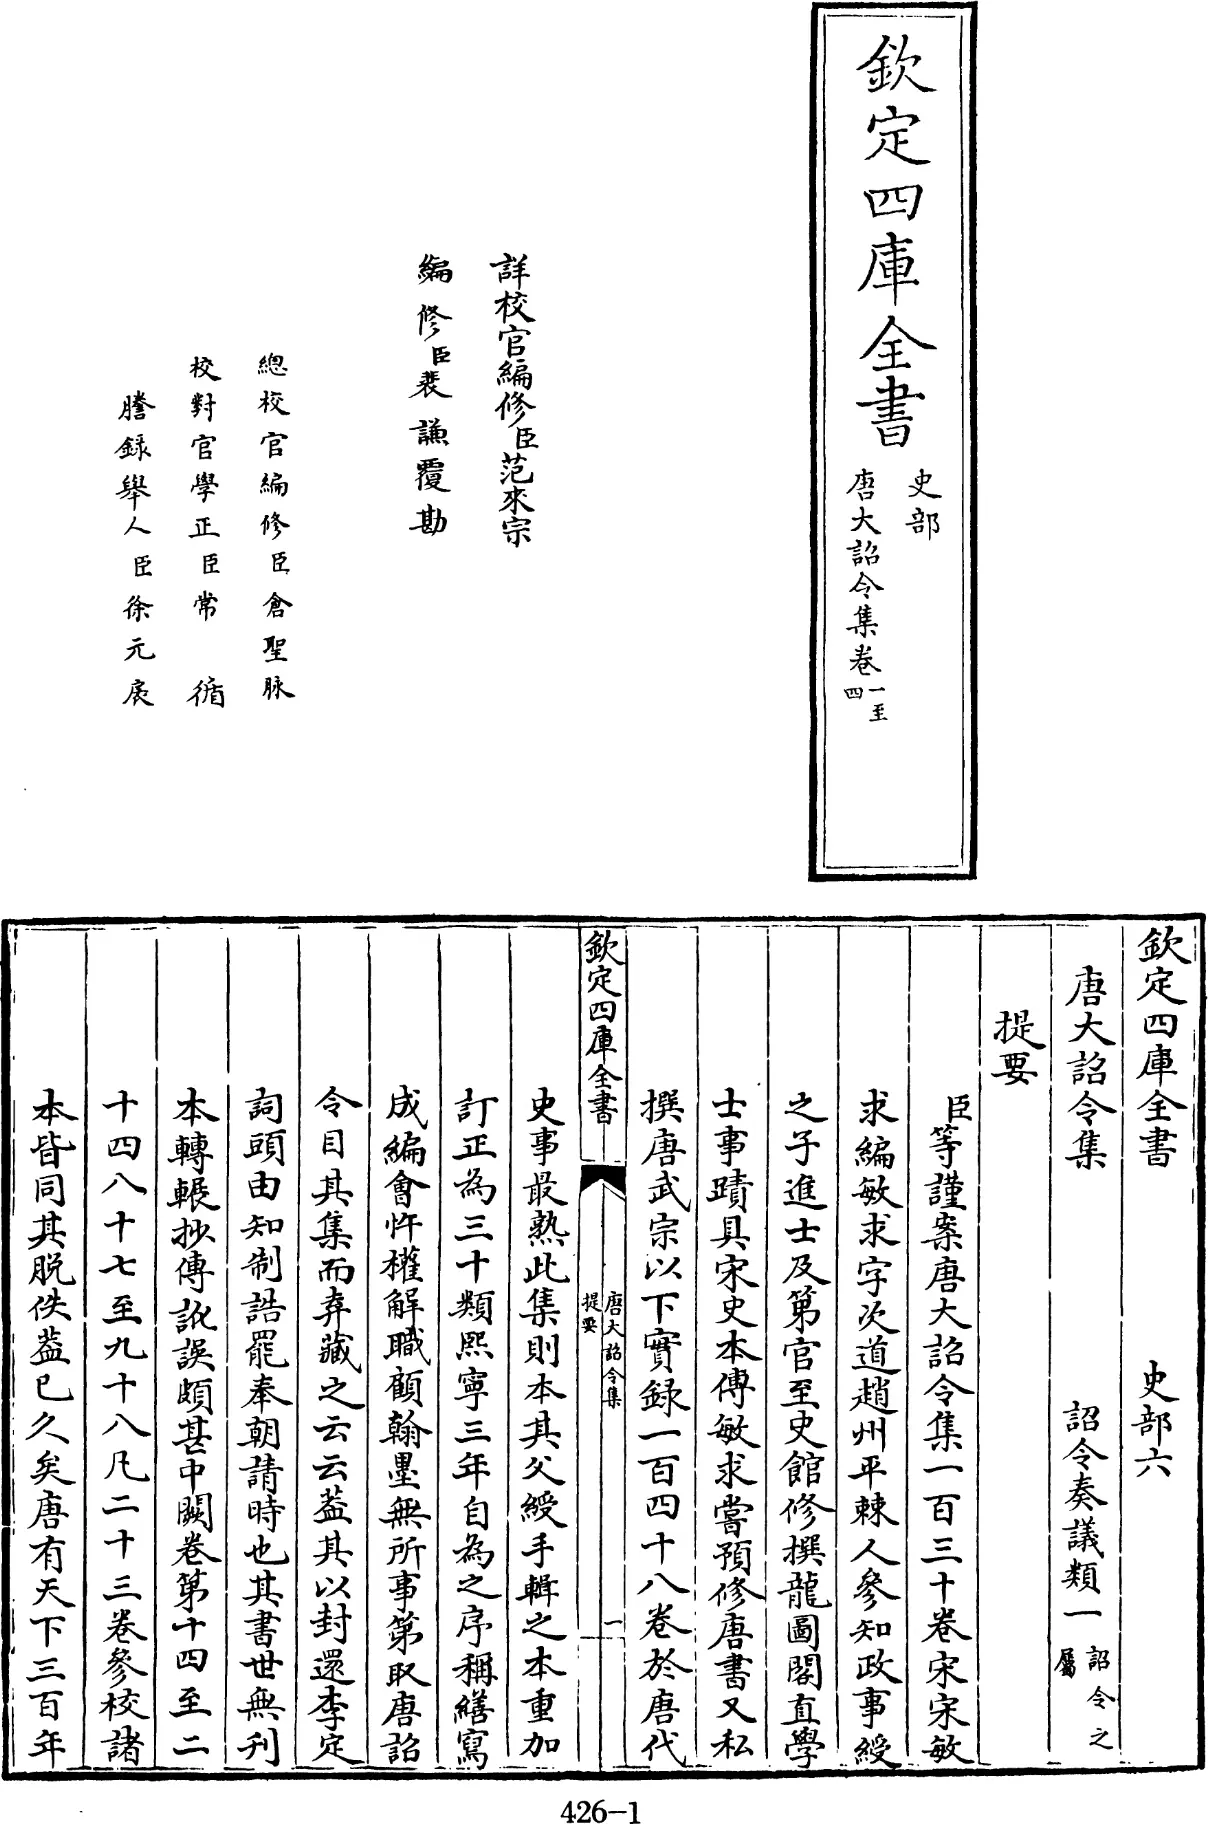 欽定四庫全書
史部
唐大詔令集卷一至四
詳校官編修臣范來宗
編修臣裴謙覆勘
總校官編修臣倉聖脉
校對官學正臣常循
謄錄舉人臣徐元扆
欽定四庫全書 史部六
唐大詔令集 詔令奏議類一 詔令之屬
提要
臣等謹案唐大詔令集一百三十卷宋宋敏
求編敏求字次道趙州平棘人參知政事綬
之子進士及第官至史館修撰龍圖閣直學
士事蹟具宋史本傳敏求嘗預修唐書又私
撰唐武宗以下實録一百四十八卷於唐代
欽定四庫全書 唐大詔令集 提要 一
史事最熟此集則本其父綬手輯之本重加
訂正為三十類熙寧三年自為之序稱繕寫
成編會忤權解職顧翰墨無所事第取唐詔
令目其集而弆藏之云云葢其以封還李定
詞頭由知制誥罷奉朝請時也其書世無刋
本轉輾抄傳訛誤頗甚中闕卷第十四至二
十四八十七至九十八凡二十三卷參校諸
本皆同其脱佚葢已久矣唐有天下三百年
426-1